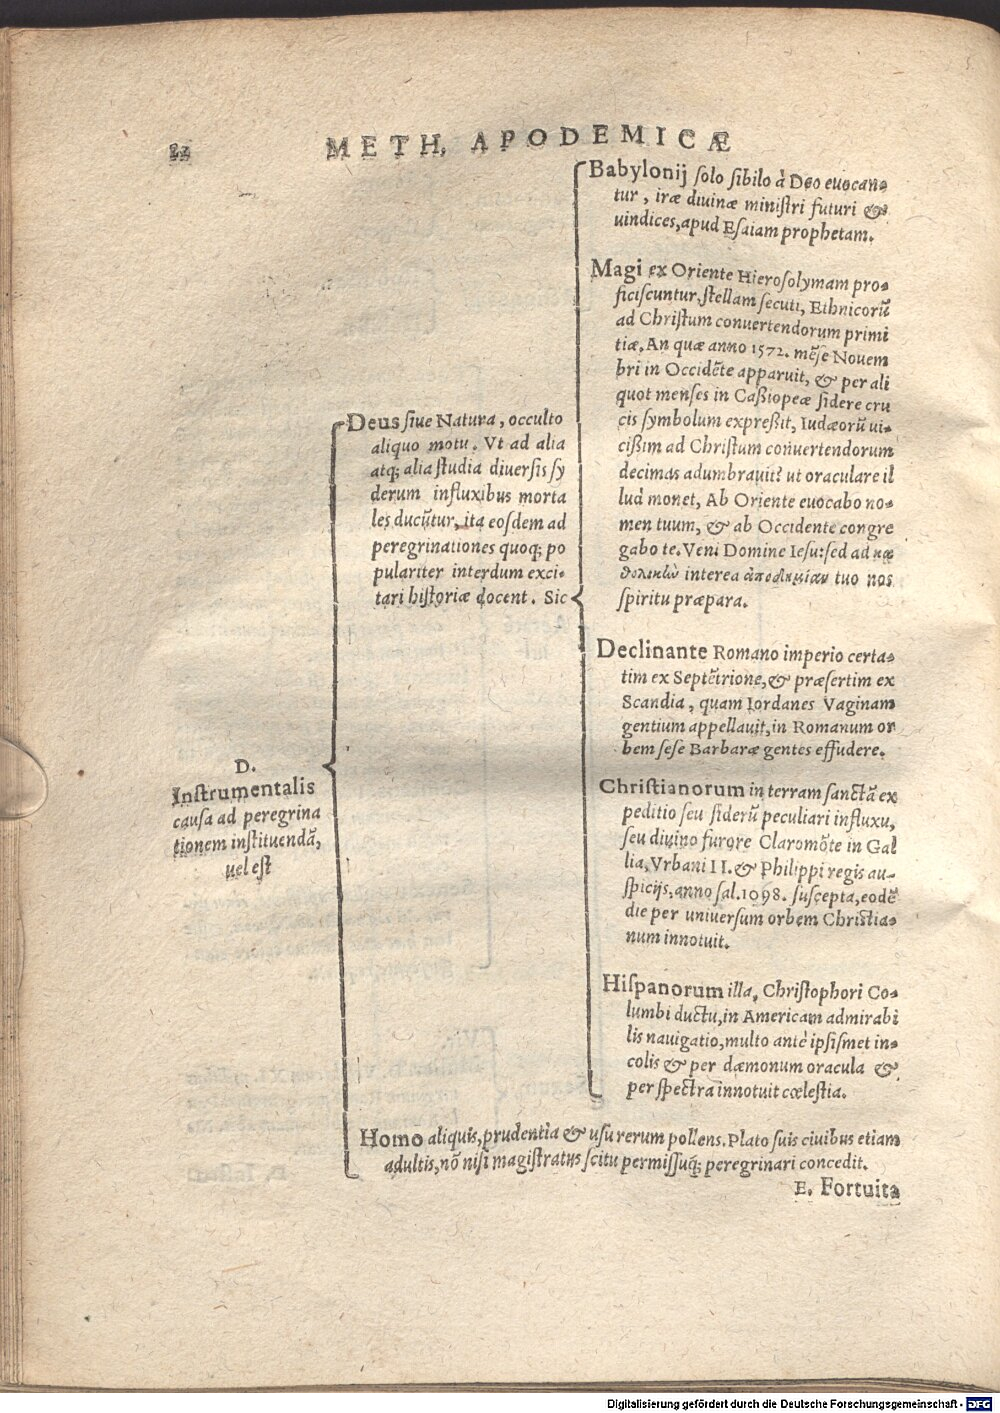 METH. APODEMICÆ
D.
Instrumentalis
causa ad peregrina
tionem instituendã,
uel est
Deus siue Natura, occulto
aliquo motu. Vt ad alia
atq; alia studia diuersis sy
derum influxibus morta
les ducũtur, ita eosdem ad
peregrinationes quoq; po
pulariter interdum exci-
tari historiæ docent. Sic
Babylonij solo sibilo à Deo euocan-
tur, iræ diuinæ ministri futuri &
uindices, apud Esaiam prophetam.
Magi ex Oriente Hierosolymam pro-
ficiscuntur, stellam secuti, Ethnicorũ
ad Christum conuertendorum primi
tiæ. An quæ anno 1572. mẽse Nouem
bri in Occidẽte apparuit, & per ali
quot menses in Caßiopeæ sidere cru
cis symbolum expreßit, Iudæorũ ui-
cißim ad Christum conuertendorum
decimas adumbrauit? ut oraculare il
lud monet, Ab Oriente euocabo no-
men tuum, & ab Occidente congre
gabo te. Veni Domine Iesu: sed ad κα
θολικὼ interea ἀποδημίαν tuo nos
spiritu præpara.
Declinante Romano imperio certa-
tim ex Septẽtrione, & præsertim ex
Scandia, quam Iordanes Vaginam
gentium appellauit, in Romanum or
bem sese Barbaræ gentes effudere.
Christianorum in terram sanctã ex
peditio seu siderũ peculiari influxu,
seu diuino furore Claromõte in Gal
lia, Vrbani II. & Philippi regis au-
spicijs, anno sal. 1098. suscepta, eodẽ
die per uniuersum orbem Christia-
num innotuit.
Hispanorum illa, Christophori Co-
lumbi ductu, in Americam admirabi
lis nauigatio, multo antè ipsismet in-
colis & per dæmonum oracula &
per spectra innotuit cœlestia.
Homo aliquis, prudentia & usu rerum pollens. Plato suis ciuibus etiam
adultis, nõ nisi magistratus scitu permissuq; peregrinari concedit.
E. Fortuita
Digitalisierung gefördert durch die Deutsche Forschungsgemeinschaft - DFG